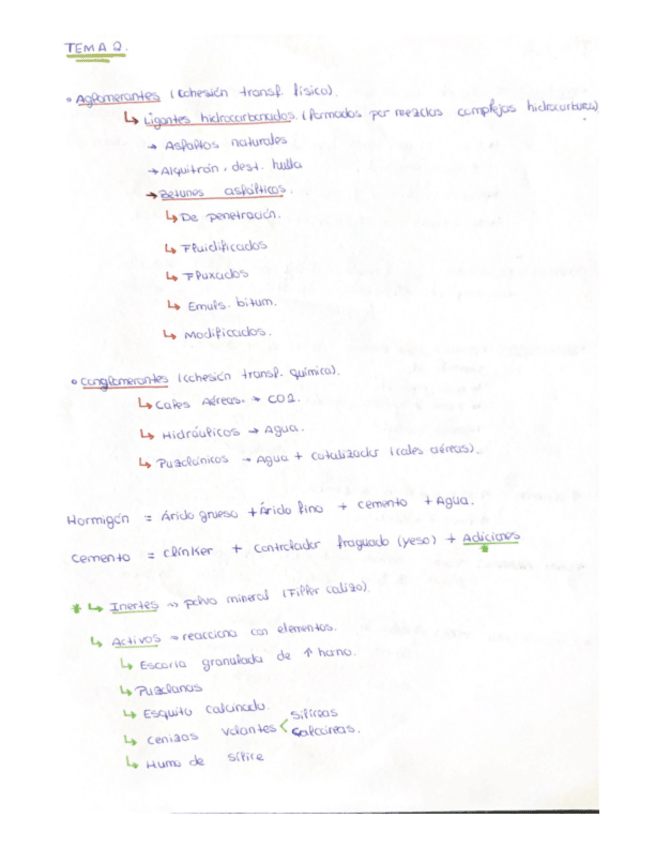 TEMA 2.
• Aglomerantes (cohesión transf. física).
↳ Ligantes hidrocarbonados. (formados por mezclas complejas hidrocarburos)
→ Asfaltos naturales
→ Alquitrán, dest. hulla
→ Betunes asfálticos.
↳ De penetración.
↳ Fluidificados
↳ Fluxados
↳ Emuls. bitum.
↳ Modificados.
• Conglomerantes (cohesión transf. química).
↳ Cales Aéreas. → CO2.
↳ Hidráulicos → Agua.
↳ Puzolánicos → Agua + catalizador (cales aéreas).
Hormigón = Árido grueso + Árido fino + cemento + Agua.
Cemento = clínker + Controlador fraguado (yeso) + Adiciones
*
* ↳ Inertes → polvo mineral (Filler calizo).
↳ Activos → reacciona con elementos.
↳ Escoria granulada de ↑ horno.
↳ Puzolanas
↳ Esquito calcinado.
↳ Cenizas volantes < Silíceas
Calcáreas.
↳ Humo de sílice